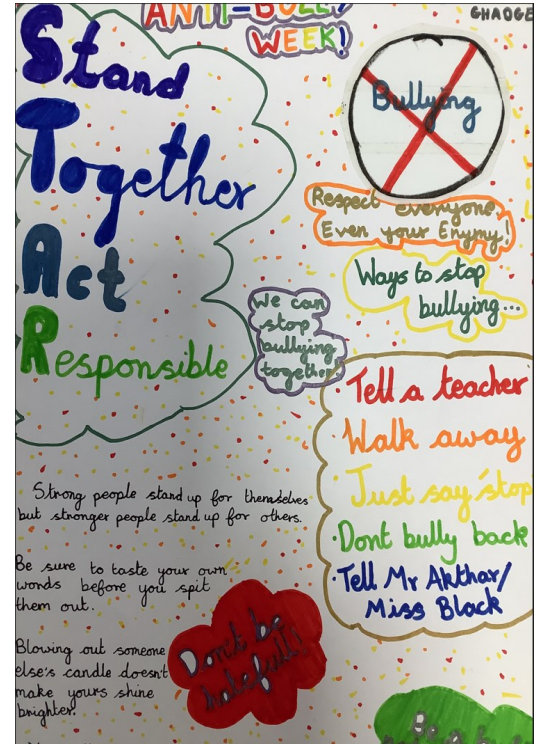 ANTI-BULLY
WEEK!
GHADGE
Stand
Together
Act
Responsible
Bullying
Respect everyone,
Even your Enymy!
Ways to stop
bullying...
We can
stop
bullying
together!
Tell a teacher
Walk away
Just say 'stop
Dont bully back
Tell Mr Akthar/
Miss Black
Strong people stand up for themselves
but stronger people stand up for others.
Be sure to taste your own
words before you spit
them out.
Blowing out someone
else's candle doesn't
make yours shine
brighter.
Don't be
hatefull!
Be a